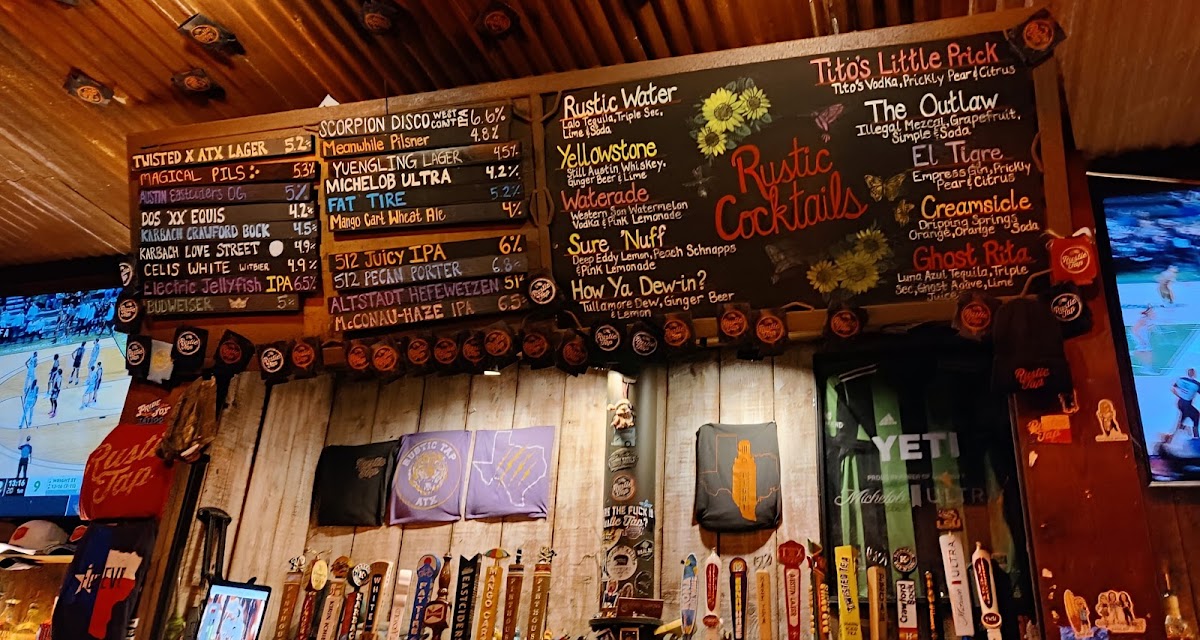 TWISTED X ATX LAGER 5.2
MAGICAL PILS 5.3%
AUSTIN EASTCIDERS OG 5%
DOS XX EQUIS 4.2%
KARBACH CRAWFORD BOCK 4.5%
KARBACH LOVE STREET 4.9%
CELIS WHITE WITBIER 4.9%
Electric Jellyfish IPA 6.5%
BUDWEISER 5%
SCORPION DISCO WEST COAST IPA 6.6%
Meanwhile Pilsner 4.8%
YUENGLING LAGER 4.5%
MICHELOB ULTRA 4.2%
FAT TIRE 5.2%
Mango Cart Wheat Ale 4%
512 JUICY IPA 6%
512 PECAN PORTER 6.8%
ALTSTADT HEFEWEIZEN 5.1%
McCONAU-HAZE IPA 6.5%
Rustic Water
Lalo Tequila, Triple Sec,
Lime & Soda
Yellowstone
Still Austin Whiskey,
Ginger Beer & Lime
Waterade
Western Son Watermelon
Vodka & Pink Lemonade
Sure 'Nuff
Deep Eddy Lemon, Peach Schnapps
& Pink Lemonade
How Ya Dew-in?
Tullamore Dew, Ginger Beer
& Lemon
Rustic
Cocktails
Tito's Little Prick
Tito's Vodka, Prickly Pear & Citrus
The Outlaw
Illegal Mezcal, Grapefruit,
Simple & Soda
El Tigre
Empress Gin, Prickly
Pear & Citrus
Creamsicle
Dripping Springs
Orange, Orange Soda
Ghost Rita
Luna Azul Tequila, Triple
Sec, Ghost Agave, Lime
Juice
Rustic Tap
RUSTIC TAP
ATX
YETI
Michelob ULTRA
Rustic
Tap
13:16
9
FAT TIRE
TWISTED TEA
Crawford
Bock
ULTRA